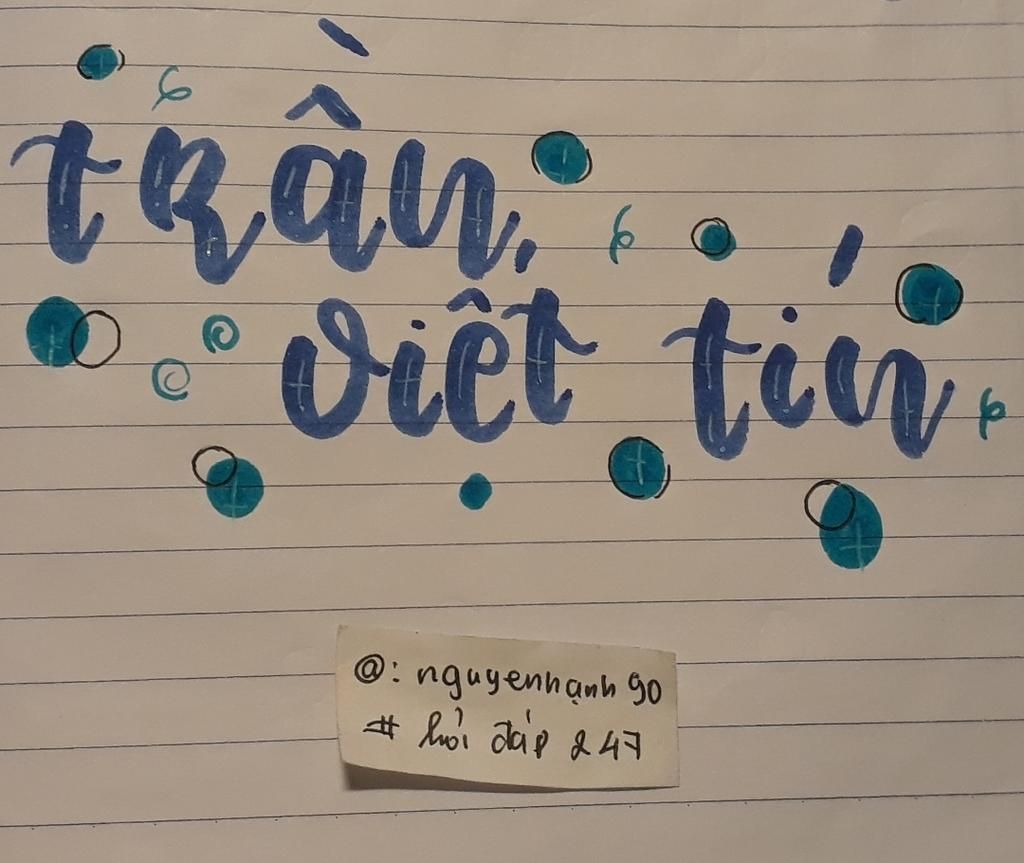 trần
việt tín
@: nguyenhạnh 90
# hỏi đáp 247